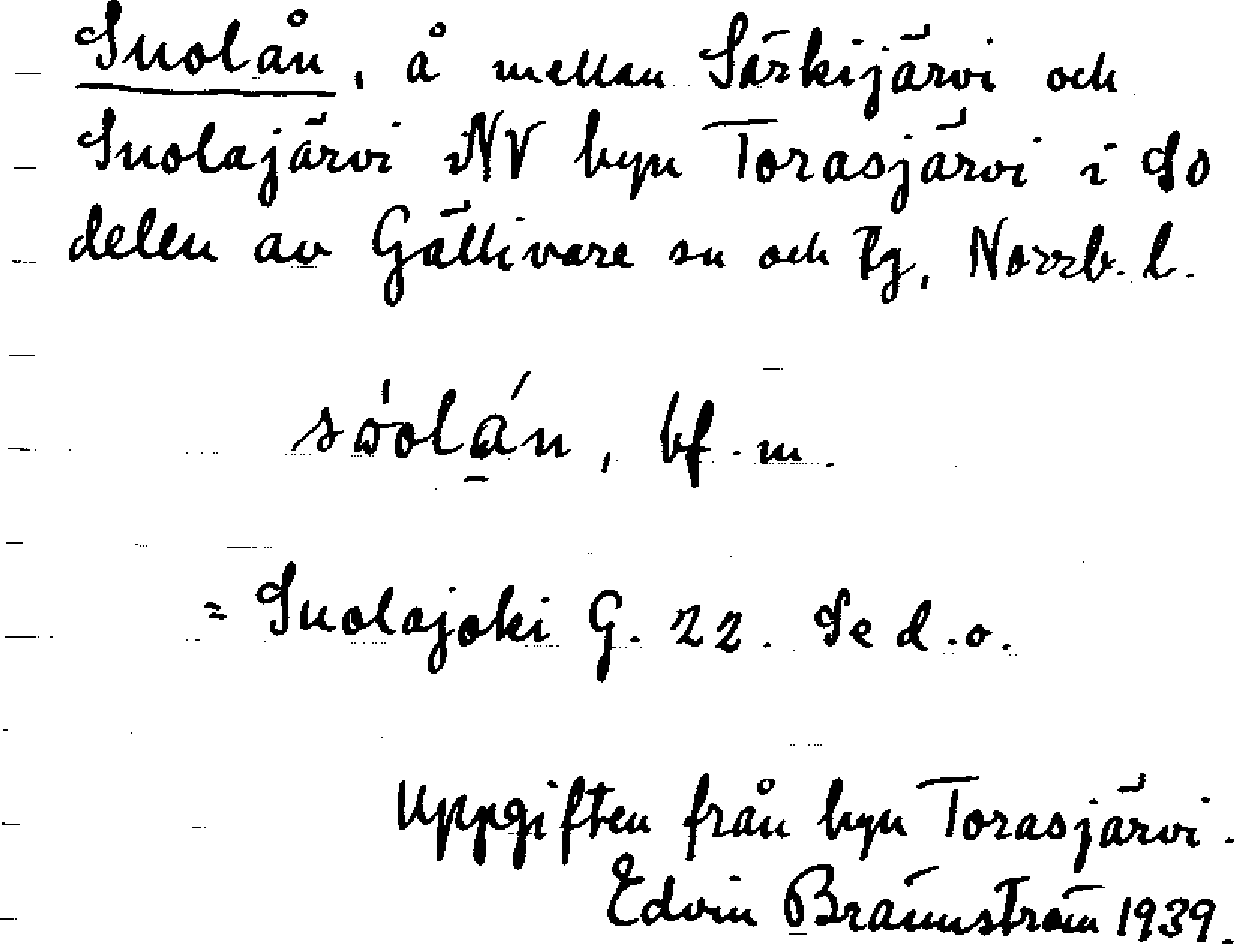 Suolån, å mellan Särkijärvi och
Suolajärvi NV byn Torasjärvi i SO
delen av Gällivare sn och tg, Norrb. l.
sóolán, bf. m.
= Suolajoki G. 22. Se d. o.
Uppgiften från byn Torasjärvi.
Edvin Brännström 1939.